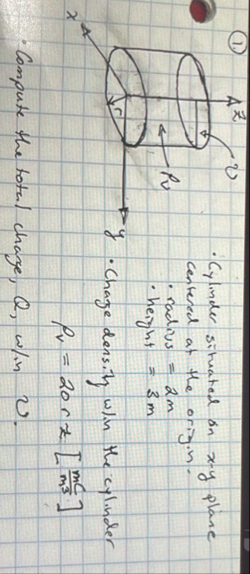 ①
z
υ
ρv
r
x
y
· Cylinder situated on x-y plane
centered at the origin.
· radius = 2m
· height = 3m
· Charge density w/in the cylinder
ρv = 20 r z [mC/m3]
· Compute the total charge, Q, w/in υ.